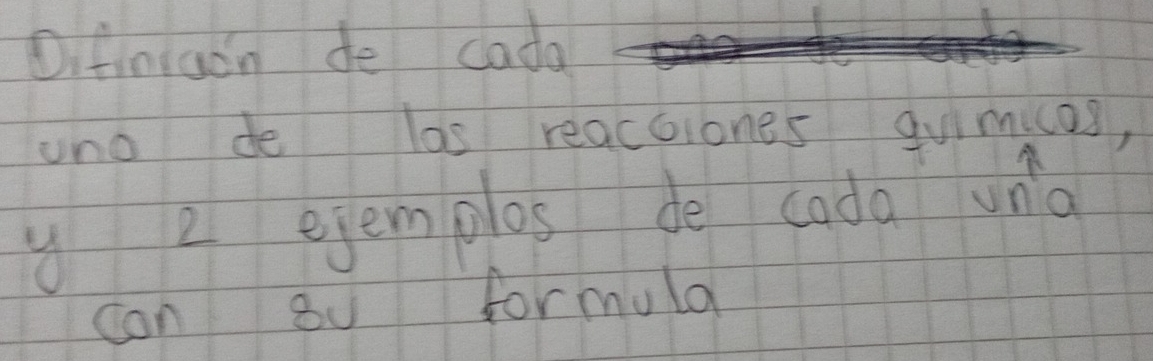 Difinición de cada
uno de las reacciones quimicas,
y 2 ejemplos de cada una
con su formula